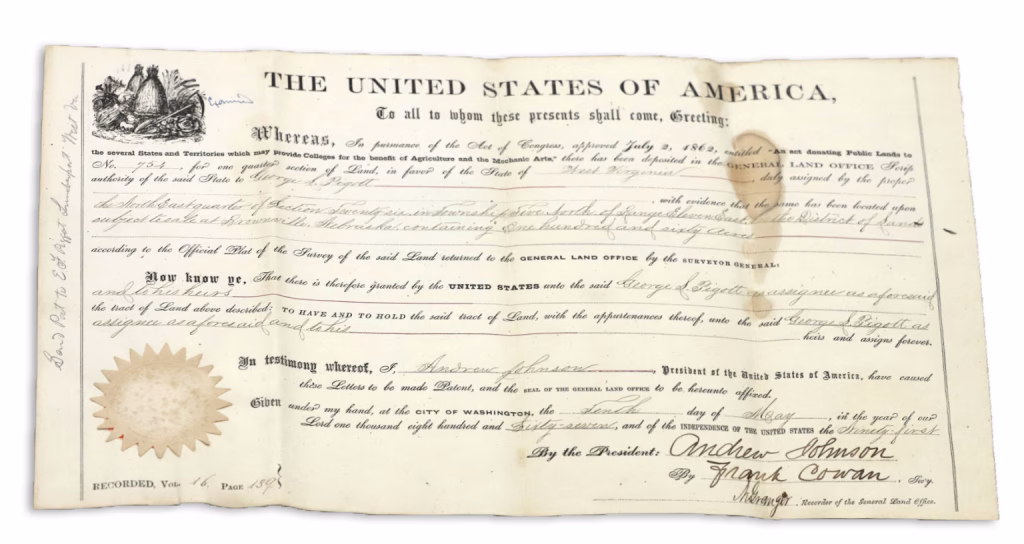 THE UNITED STATES OF AMERICA,
To all to whom these presents shall come, Greeting:
Examined
Whereas, In pursuance of the Act of Congress, approved July 2, 1862, entitled "An act donating Public Lands to
the several States and Territories which may provide Colleges for the benefit of Agriculture and the Mechanic Arts," there has been deposited in the GENERAL LAND OFFICE Scrip
No. 754, for one quarter section of Land, in favor of the State of West Virginia, duly assigned by the proper
authority of the said State to George L. Pigott
, with evidence that the same has been located upon
the North East quarter of Section Twenty six, in Township Five North, of Range Eleven East, in the District of Lands
subject to sale at Brownville, Nebraska, containing One hundred and sixty acres
according to the Official Plat of the Survey of the said Land returned to the GENERAL LAND OFFICE by the SURVEYOR GENERAL:
Now know ye, That there is therefore granted by the UNITED STATES unto the said George L. Pigott as assignee as aforesaid
and to his heirs
the tract of Land above described: TO HAVE AND TO HOLD the said tract of Land, with the appurtenances thereof, unto the said George L. Pigott as
assignee as aforesaid and to his heirs and assigns forever.
In testimony whereof, I, Andrew Johnson, President of the United States of America, have caused
these Letters to be made Patent, and the SEAL OF THE GENERAL LAND OFFICE to be hereunto affixed.
Given under my hand, at the CITY OF WASHINGTON, the Tenth day of May, in the year of our
Lord one thousand eight hundred and Sixty-seven, and of the INDEPENDENCE OF THE UNITED STATES the Ninety-first
By the President: Andrew Johnson
By Frank Cowan, Secy.
Recorder of the General Land Office.
RECORDED, Vol. 16, PAGE 139